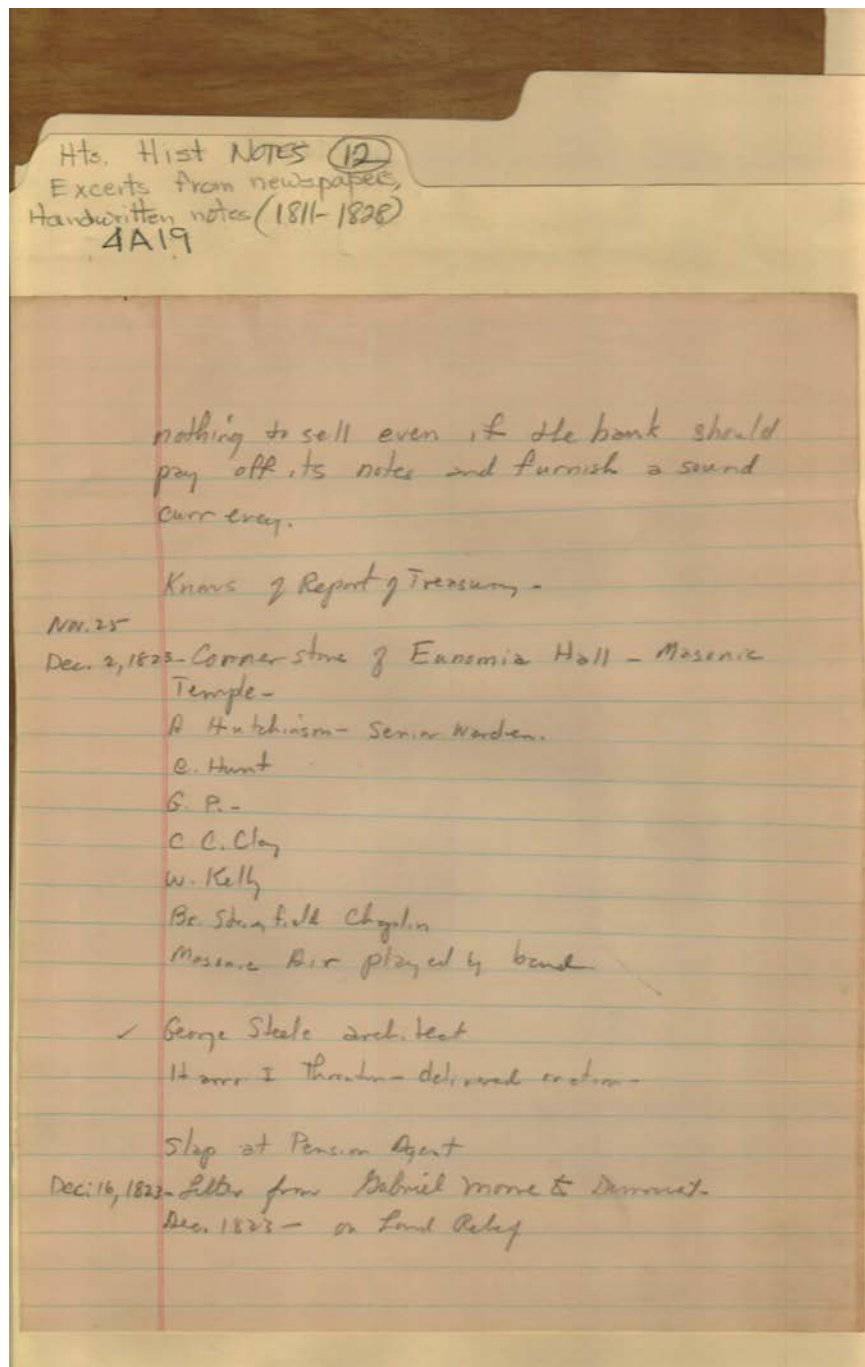 Hts. Hist NOTES (12)
Excerts from newspapers,
Handwritten notes (1811-1828)
4A19
nothing to sell even if the bank should
pay off its notes and furnish a sound
currency.
of Report of Treasury -
Nov. 25
Dec. 2, 1823 - Corner stone of Eunomia Hall - Masonic
Temple -
A Hutchinson - Senior Warden.
C. Hunt
G. P. -
C. C. Clay
W. Kelly
Stanfield
Masonic Air played by band
✓ George Steele architect
I Thornton - delivered oration -
Slap at Pension Agent
Dec. 16, 1823 - Letter from Gabriel Moore to Democrat -
Dec. 1823 - on Land Relief